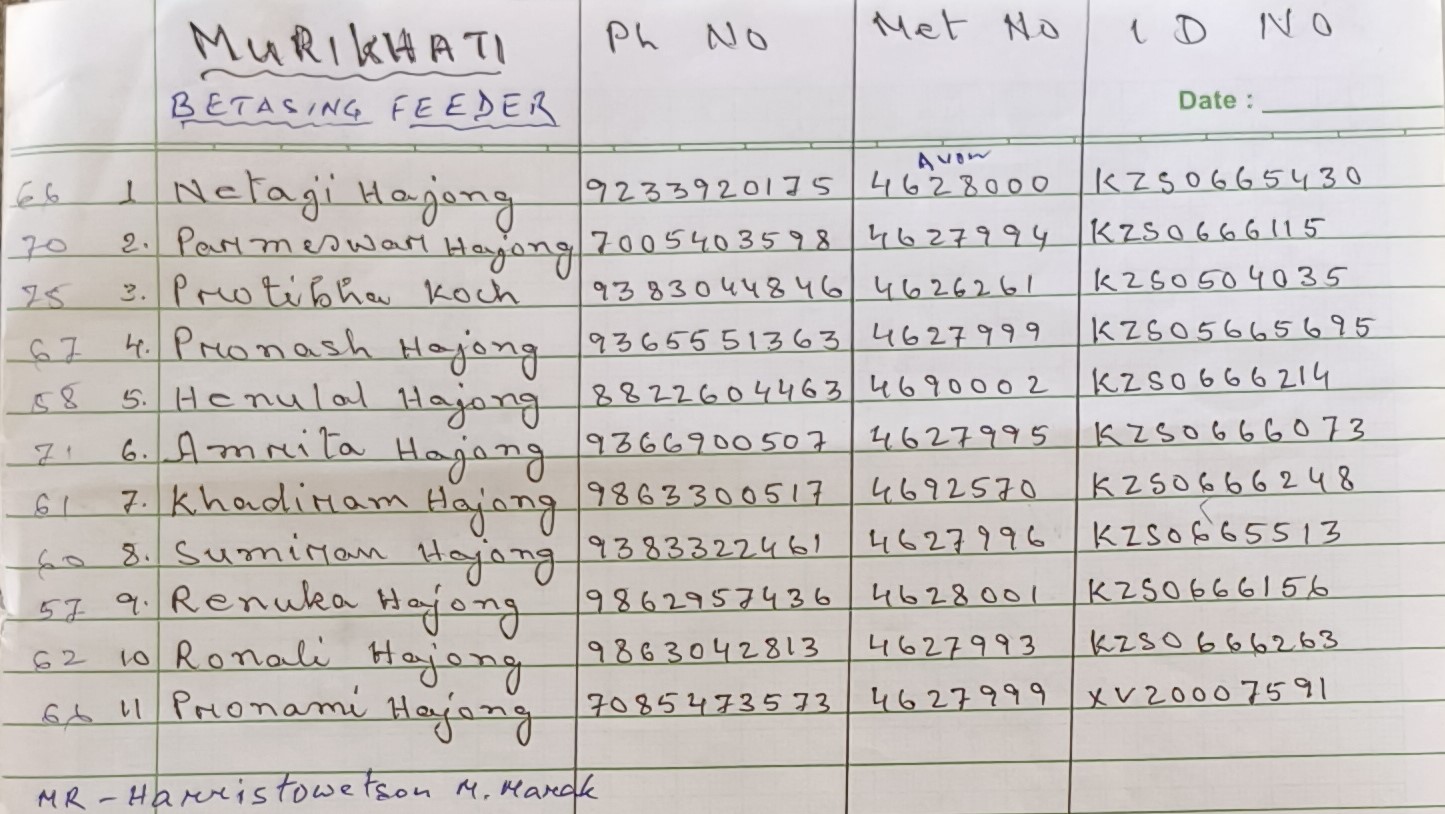 MURIKHATI Ph NO Met No I D NO
BETASING FEEDER Date :
Avon
66 1 Netagi Hajong 9233920175 4628000 KZS0665430
70 2. Parmeswar Hajong 7005403598 4627994 KZS0666115
75 3. Protibha Koch 9383044846 4626261 KZS0504035
67 4. Pronash Hajong 9365551363 4627999 KZS05665695
58 5. Henulal Hajong 8822604463 4690002 KZS0666214
71 6. Amrita Hajong 9366900507 4627995 KZS0666073
61 7. Khadiram Hajong 9863300517 4692570 KZS0666248
60 8. Sumiran Hajong 9383322461 4627996 KZS0665513
57 9. Renuka Hajong 9862957436 4628001 KZS0666156
62 10 Ronali Hajong 9863042813 4627993 KZS0666263
66 11 Pronami Hajong 7085473573 4627999 XV20007591
MR - Harristowetson M. Marak